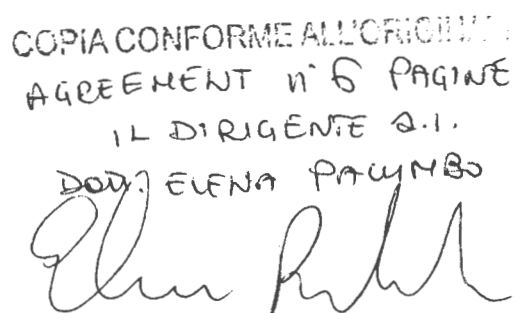 COPIA CONFORME ALL'ORIGINALE
AGREEMENT n° 6 PAGINE
IL DIRIGENTE a.i.
DOTT. ELENA PALUMBO